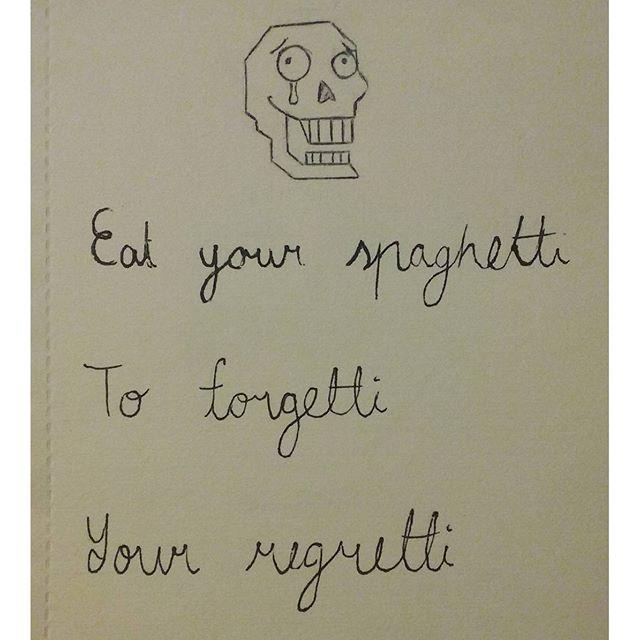 Eat your spaghetti
To forgetti
Your regretti